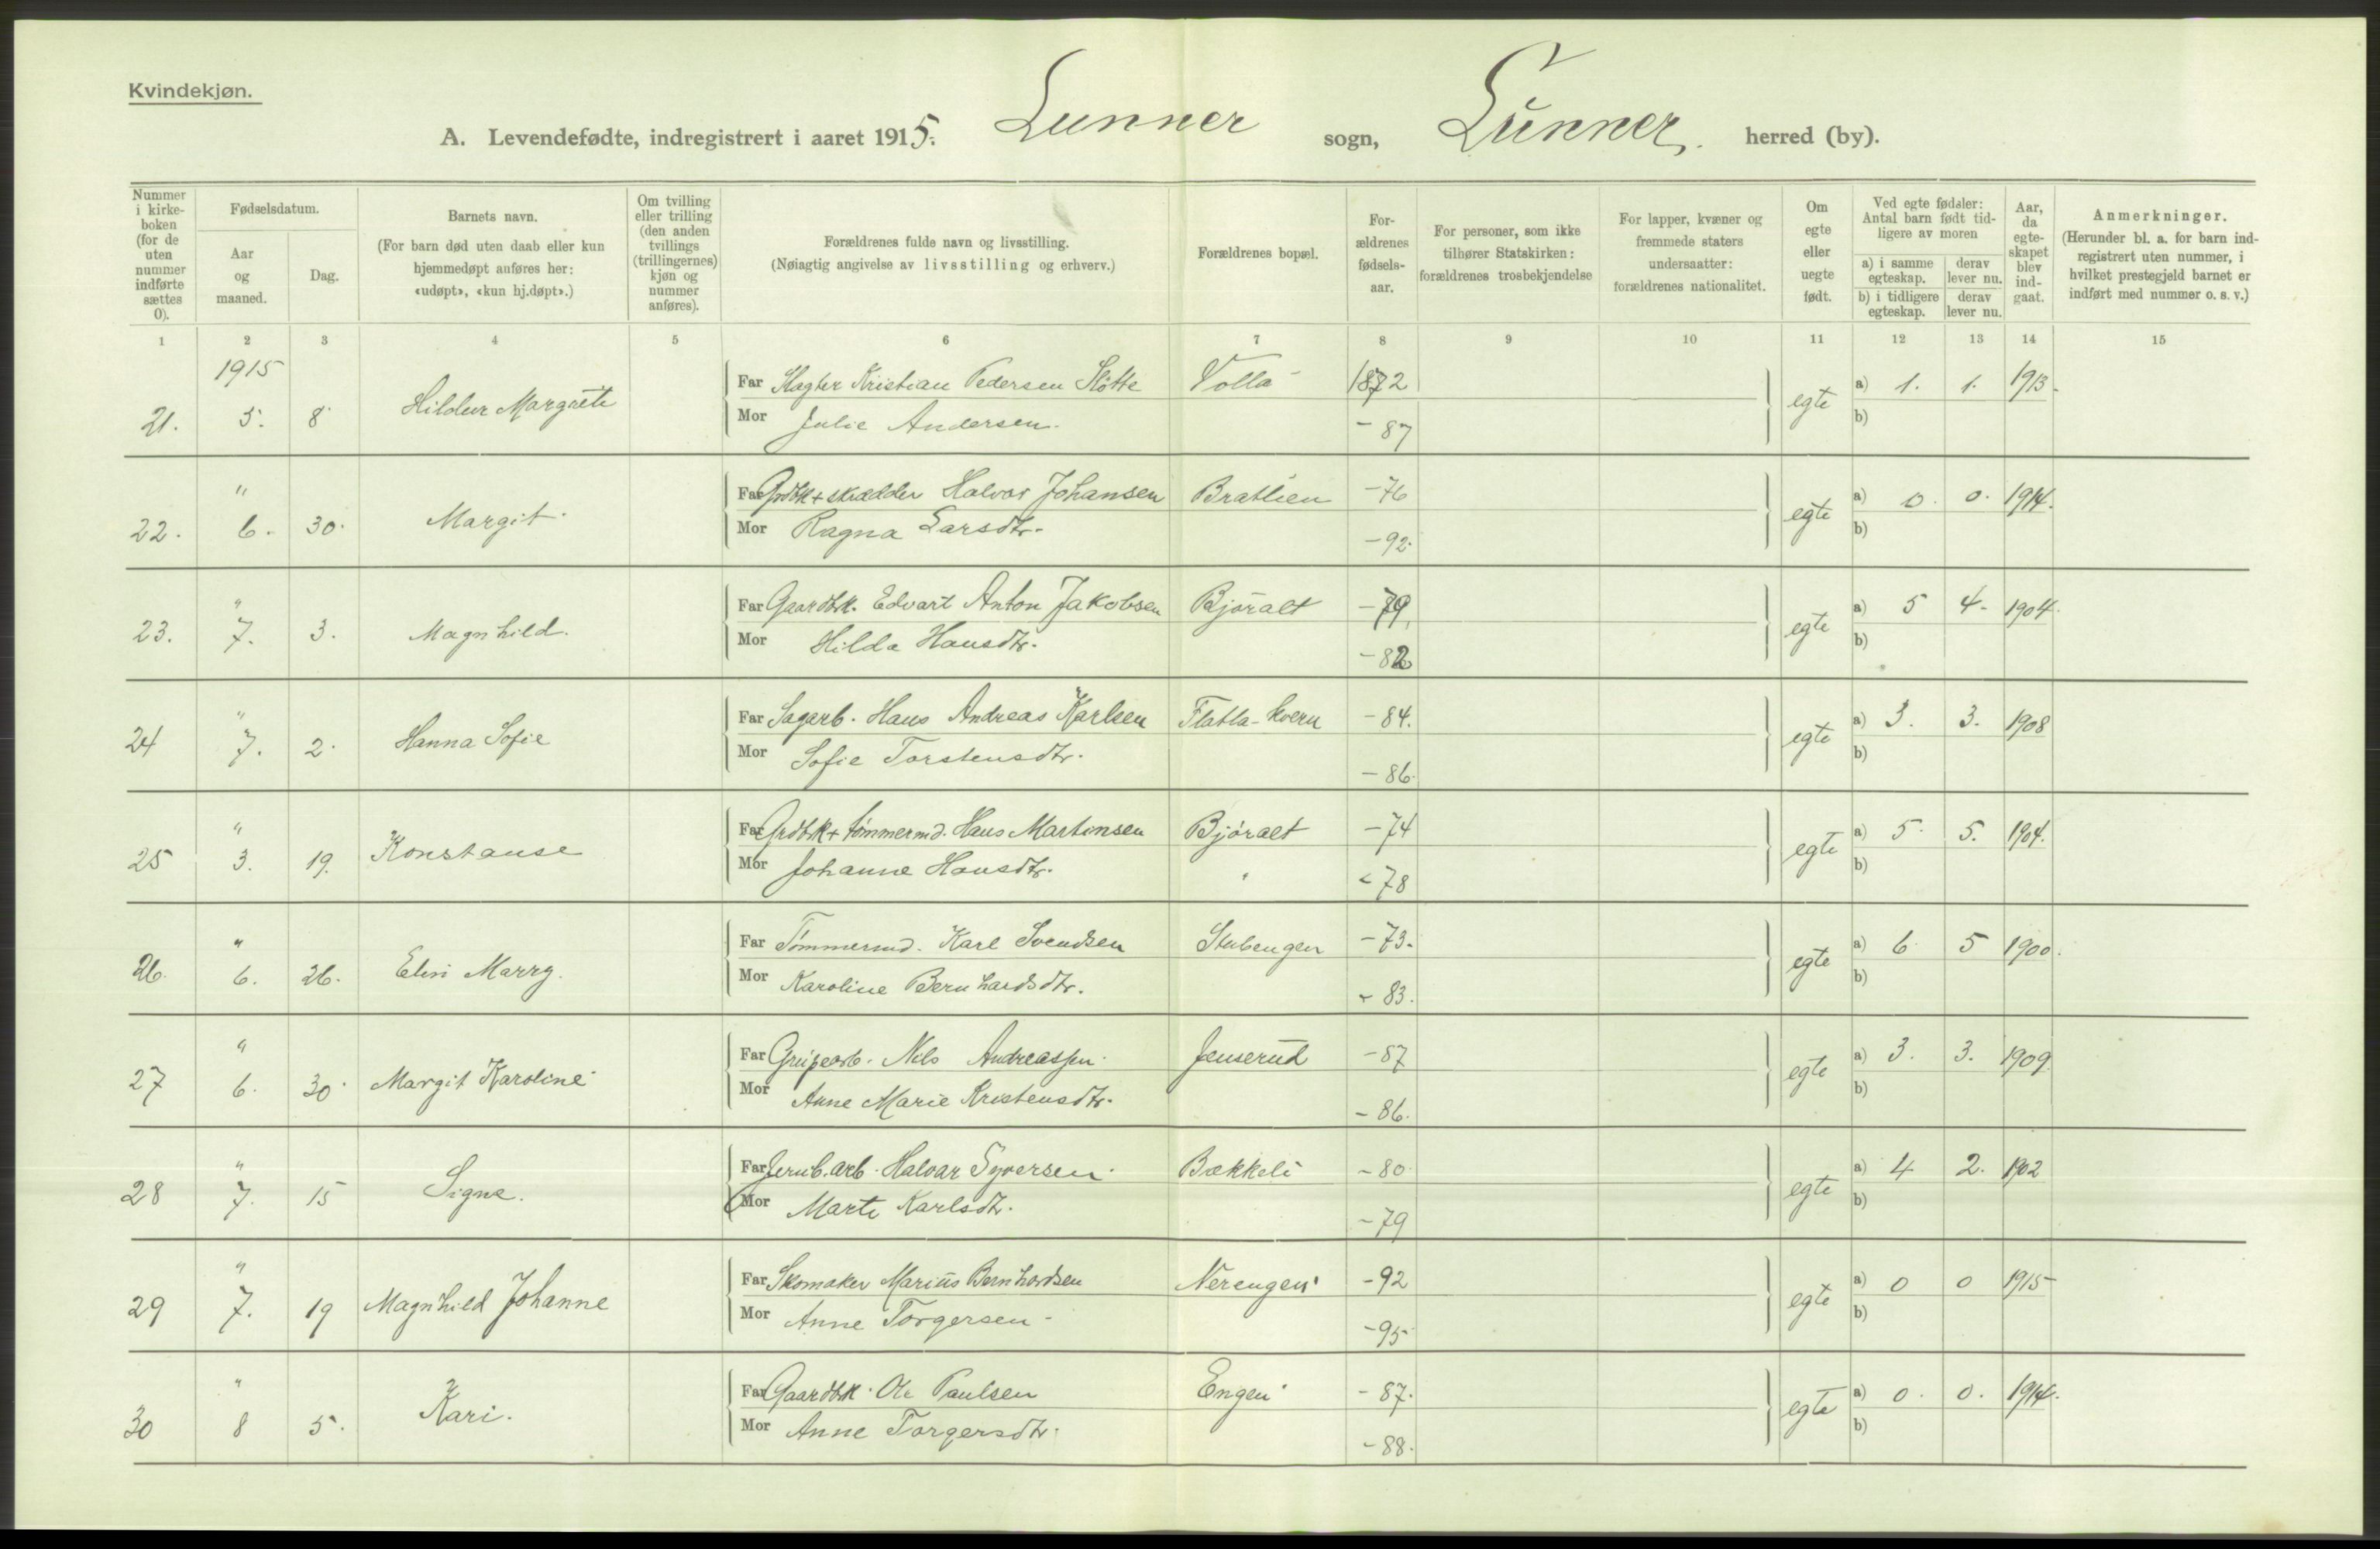 Kvindekjøn.
A. Levendefødte, indregistrert i aaret 1915. Lunner sogn, Lunner. herred (by).
Nummer i kirkeboken (for de uten nummer indførte sættes 0).
Fødselsdatum.
Aar og maaned.
Dag.
Barnets navn.
(For barn død uten daab eller kun hjemmedøpt anføres her: «udøpt», «kun hj.døpt».)
Om tvilling eller trilling (den anden tvillings (trillingernes) kjøn og nummer anføres).
Forældrenes fulde navn og livsstilling.
(Nøiagtig angivelse av livsstilling og erhverv.)
Forældrenes bopæl.
Forældrenes fødselsaar.
For personer, som ikke tilhører Statskirken: forældrenes trosbekjendelse
For lapper, kvæner og fremmede staters undersaatter: forældrenes nationalitet.
Om egte eller uegte født.
Ved egte fødsler: Antal barn født tidligere av moren
a) i samme egteskap. derav lever nu.
b) i tidligere egteskap. derav lever nu.
Aar, da egteskapet blev indgaat.
Anmerkninger.
(Herunder bl. a. for barn indregistrert uten nummer, i hvilket prestegjeld barnet er indført med nummer o. s. v.)
1 2 3 4 5 6 7 8 9 10 11 12 13 14 15
1915
21. 5. 8 Hildur Margrete Far Slagter Kristian Pedersen Slötte Volla 1872 egte a) 1. 1. 1913.
Mor Julie Andersen. - 87 b)
"
22. 6. 30. Margit. Far Grdbk + skrædder Halvor Johansen Bratlien -76 egte a) 0. 0. 1914.
Mor Ragna Larsdtr. -92. b)
"
23. 7. 3. Magnhild. Far Gaardbk. Edvart Anton Jakobsen Björalt -79. egte a) 5 4. 1904.
Mor Hilda Hansdtr. -82 b)
"
24 7. 2. Hanna Sofie Far Sagarb. Hans Andreas Karlsen Flatla-kvern -84. egte a) 3. 3. 1908
Mor Sofie Torstensdtr. -86. b)
"
25 3. 19. Konstanse Far Grdbk + tømmermd. Hans Martinsen Björalt -74 egte a) 5. 5. 1904.
Mor Johanne Hansdtr. " -78 b)
"
26. 6. 26. Elin Marry. Far Tømmermd. Karl Svendsen Stubengen -73. egte a) 6 5 1900.
Mor Karoline Bernhardsdtr. - 83. b)
"
27 6. 30. Margit Karoline Far Nils Andreassen. Jenserud -87 egte a) 3. 3. 1909.
Mor Anne Marie Kristensdtr. - 86. b)
"
28 7. 15 Signe. Far Jernb.arb. Halvar Syversen. Bækkeli -80 egte a) 4 2. 1902
Mor Marte Karlsdtr. -79 b)
"
29 7. 19 Magnhild Johanne Far Skomaker Marius Bernhardsen Nerengen -92 egte a) 0 0 1915
Mor Anne Torgersen - -95 b)
"
30 8 5. Kari. Far Gaardbk. Ole Paulsen Engen - 87. egte a) 0. 0. 1914.
Mor Anne Torgersdtr. -88. b)